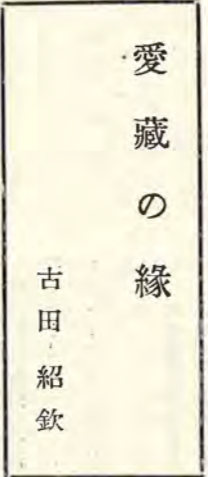 愛藏の緣
古田紹欽